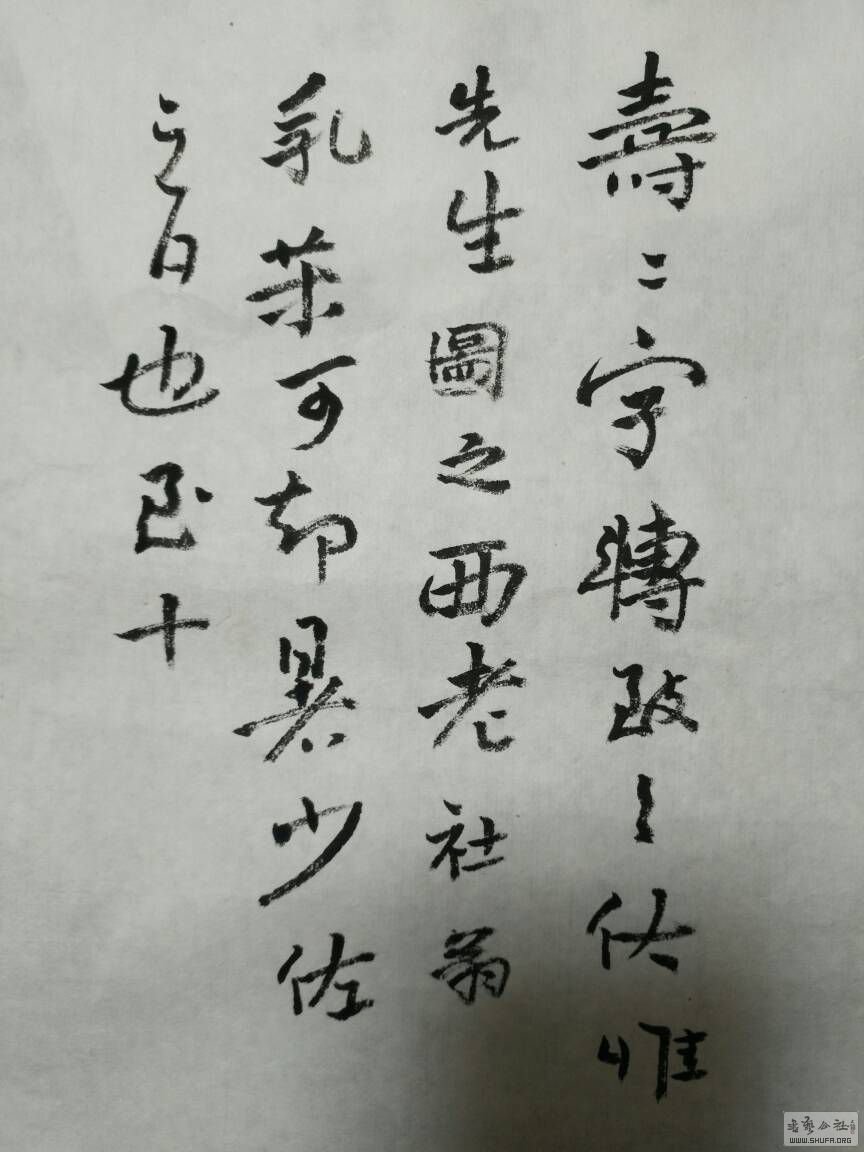 壽二字轉致之伏惟
先生圖之西老社翁
乳茶可却異少佐
言百也至十
書藝公社
WWW.SHUFA.ORG